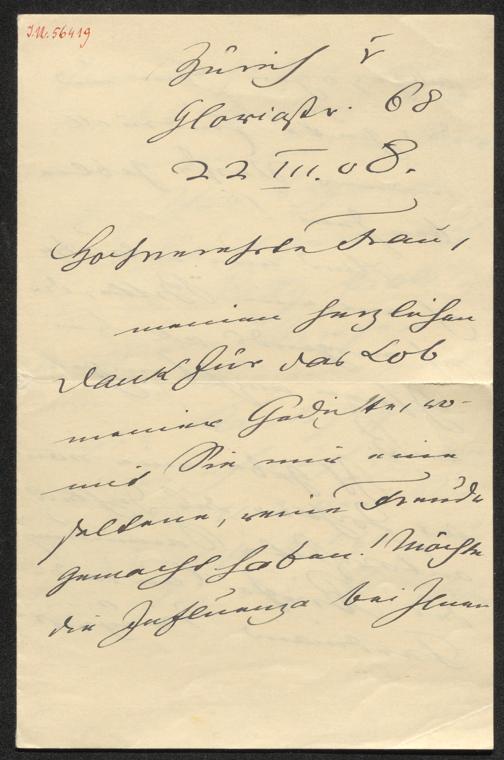 J.N. 56419
Zürich V
Gloriastr. 68
22 III. 08.
Hochverehrte Frau,
meinen herzlichen
Dank für das Lob
meiner Gedichte, wo-
mit Sie mir eine
seltene, reine Freude
gemacht haben! Möchte
die Influenza bei Ihnen